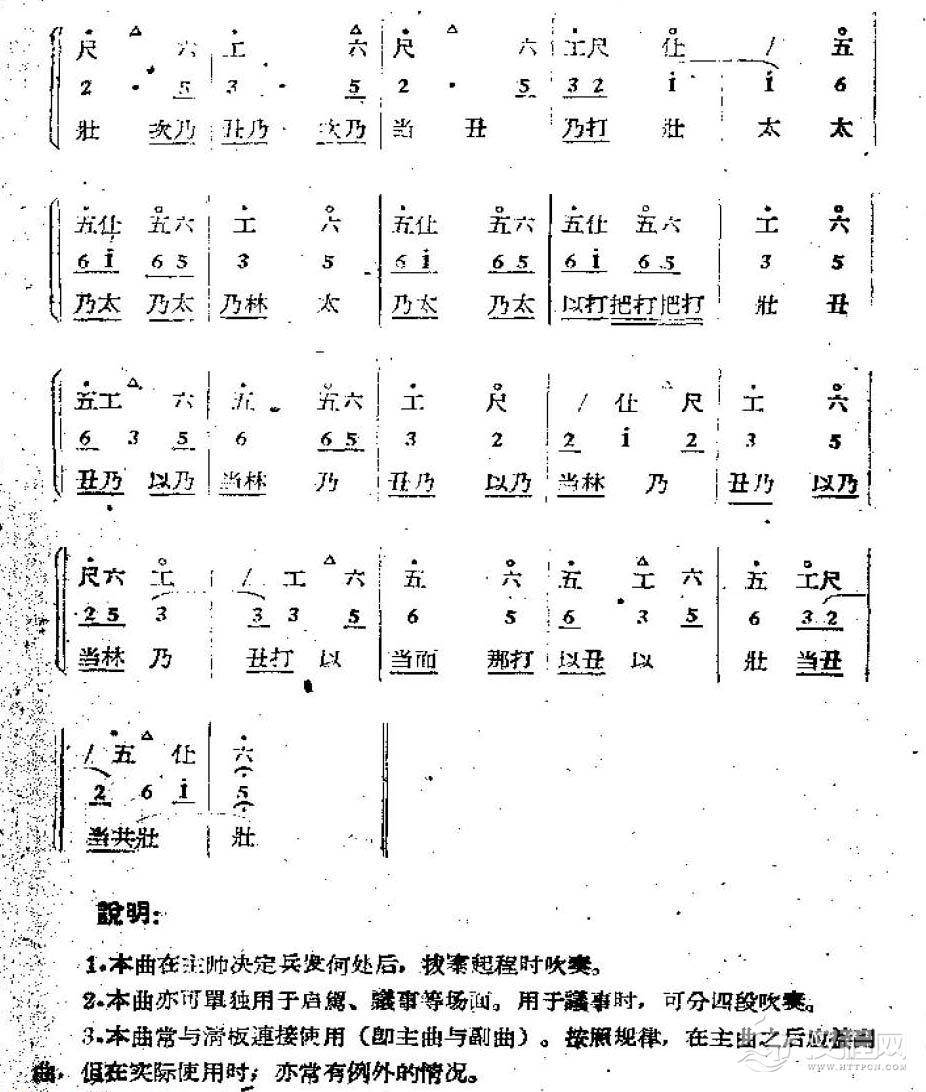 尺 六 工 六 尺 六 工尺 仕 / 五
2 · 5 3 · 5 2 · 5 3 2 i i 6
壯 次乃 丑乃 次乃 当 丑 乃打 壯 太 太
五仕 五六 工 六 五仕 五六 五仕 五六 工 六
6 i 6 5 3 5 6 i 6 5 6 i 6 5 3 5
乃太 乃太 乃林 太 乃太 乃太 以打 把打把打 壯 丑
五工 六 五 五六 工 尺 / 仕 尺 工 六
6 3 5 6 6 5 3 2 2 i 2 3 5
丑乃 以乃 当林 乃 丑乃 以乃 当林 乃 丑乃 以乃
尺六 工 / 工 六 五 六 五 工 六 五 工尺
2 5 3 3 3 5 6 5 6 3 5 6 3 2
当林 乃 丑打 以 当而 那打 以丑 以 壯 当丑
/ 五 仕 六
2 6 i 5
当共壯 壯
說明：
1.本曲在主帅决定兵发何处后，拔寨起程时吹奏。
2.本曲亦可單独用于启駕、議事等场面。用于議事时，可分四段吹奏。
3.本曲常与滑板連接使用（即主曲与副曲）。按照规律，在主曲之后应接副
曲，但在实际使用时，亦常有例外的情况。
WWW.HTTPCN.COM